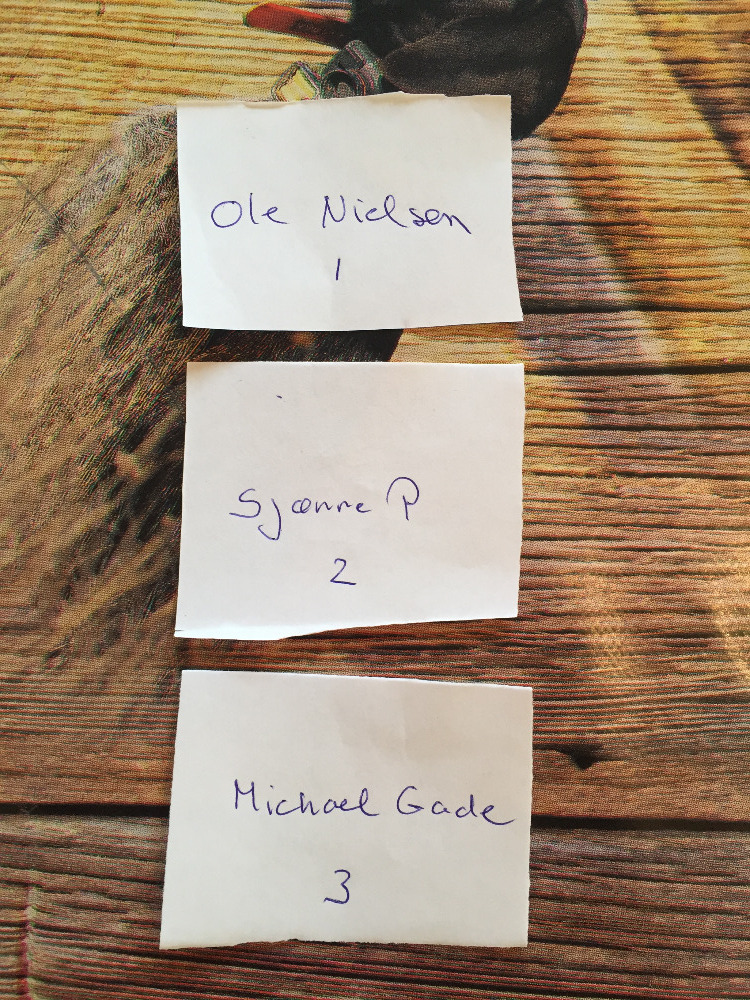 Ole Nielsen
1
Sjænne P
2
Michael Gade
3